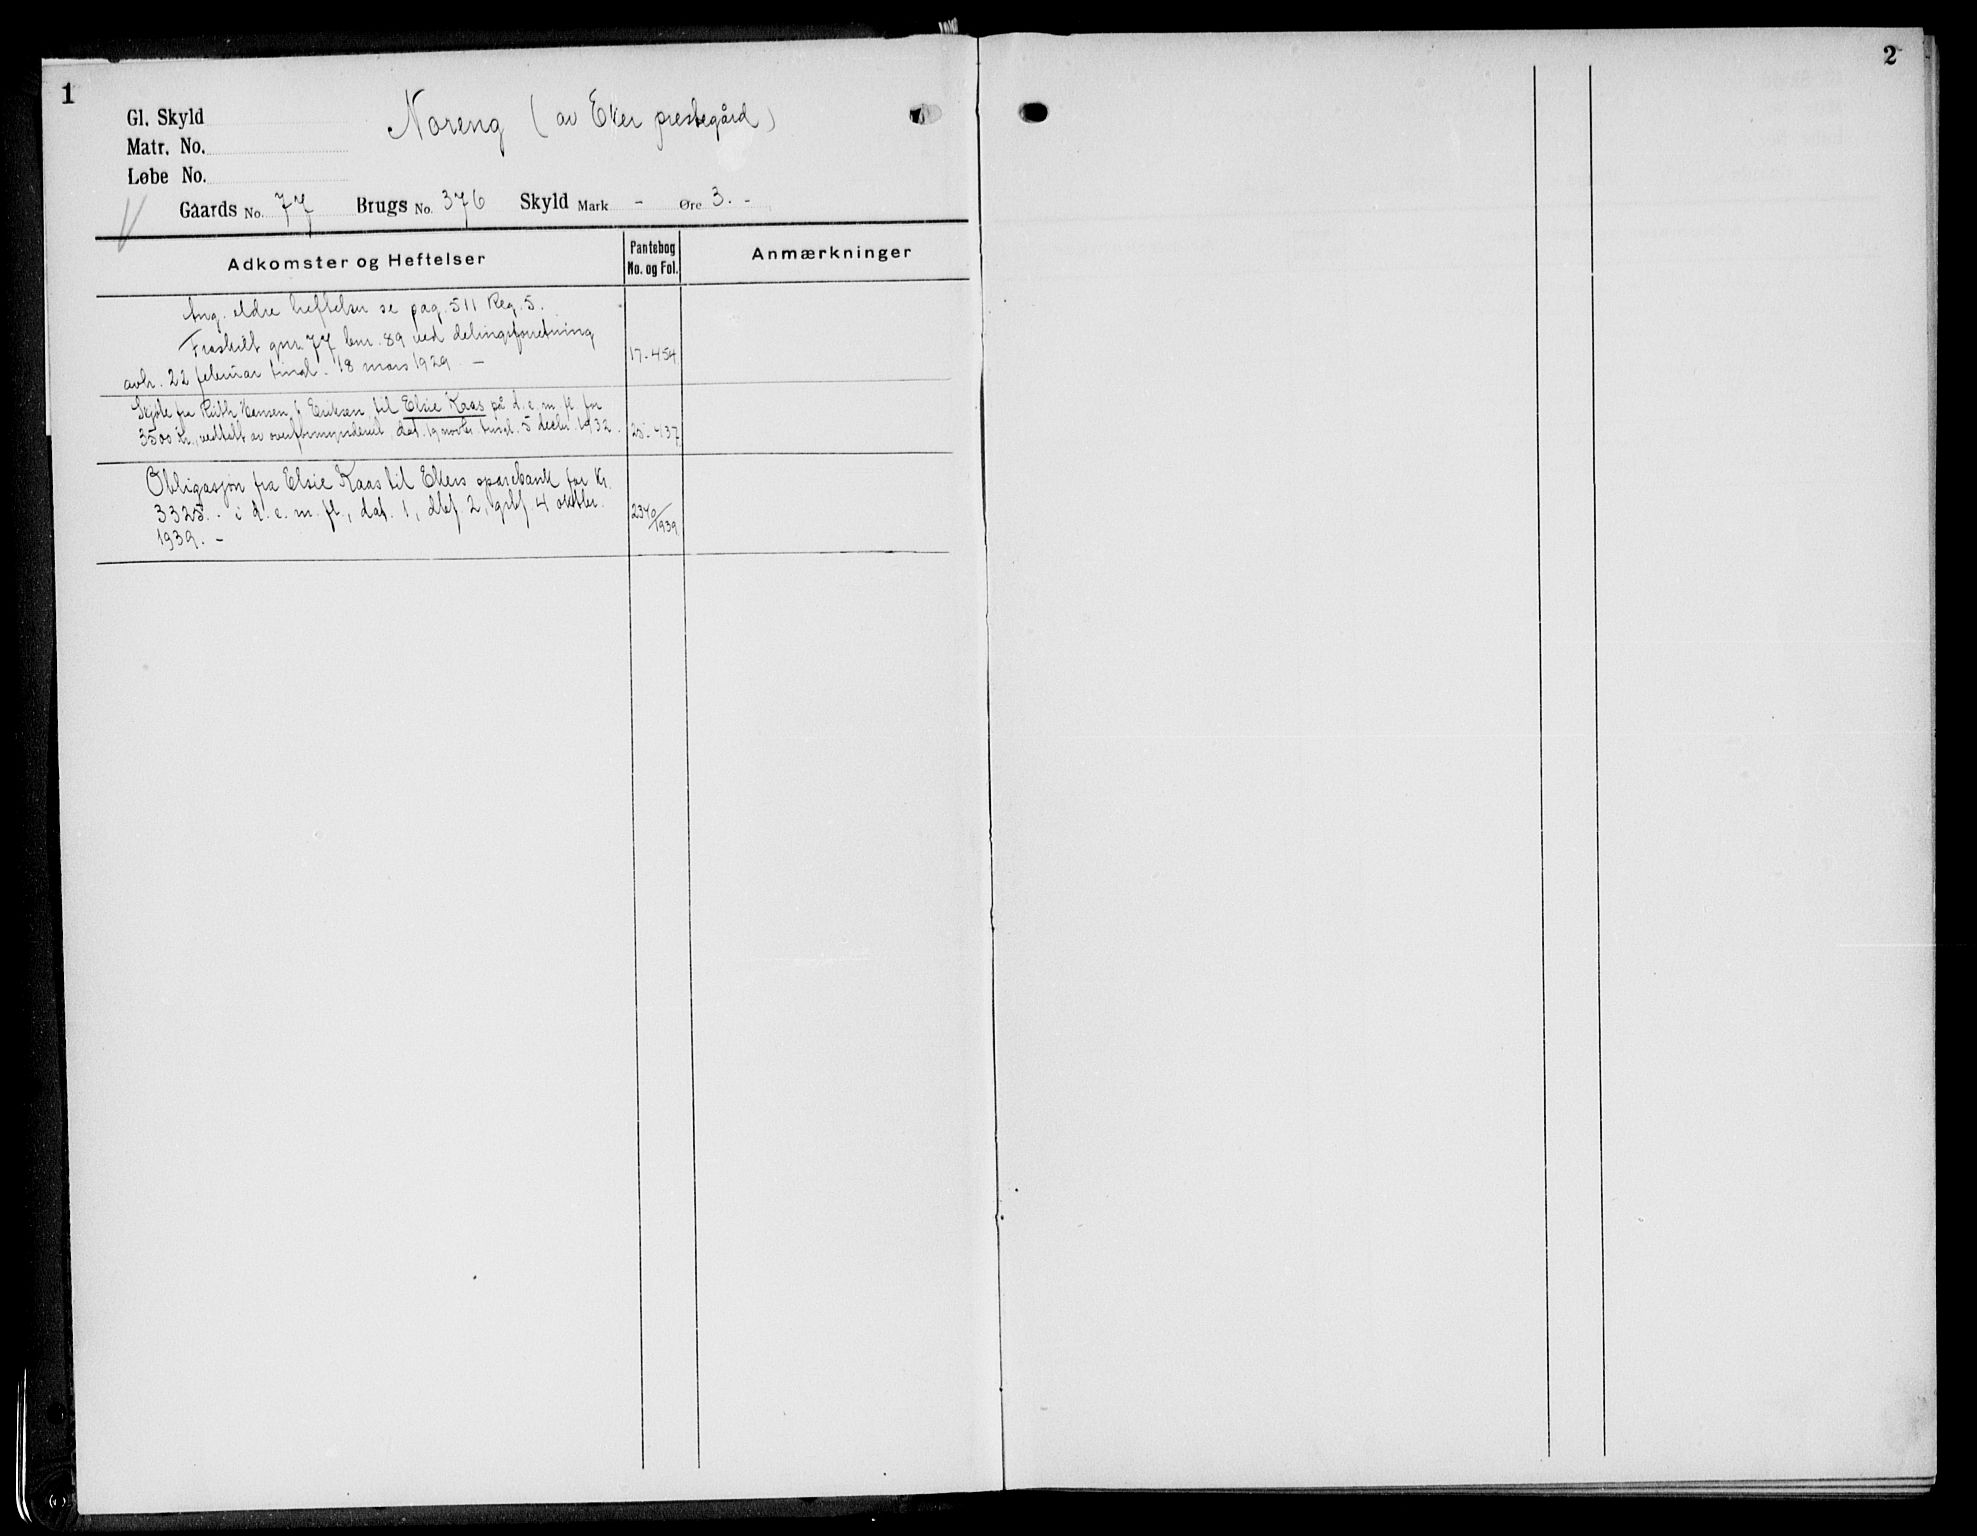 1
Gl. Skyld
Matr. No.
Løbe No.
Noreng (av Eker prestegård)
Gaards No. 77 Brugs No. 376 Skyld Mark - Øre 3. -
Adkomster og Heftelser
Pantebog
No. og Fol.
Anmærkninger
Ang. eldre heftelser se pag. 511 Reg. 5.
Fraskilt gnr. 77 bnr. 89 ved delingsforretning
avh. 22 februar tingl. 18 mars 1929 -
17-454
Skjøte fra Ruth Hansen f. Eriksen til Elsie Kaas på d. e. m. fl. for
3500 kr., vedtatt av overformynderiet, dat. 19 novbr. tingl. 5 decbr. 1932.
25-437
Obligasjon fra Elsie Kaas til Ekers sparebank for kr.
3325.- i d. e. m. fl., dat. 1, dbf. 2, grbf. 4 oktbr.
1939. -
2340/1939
2